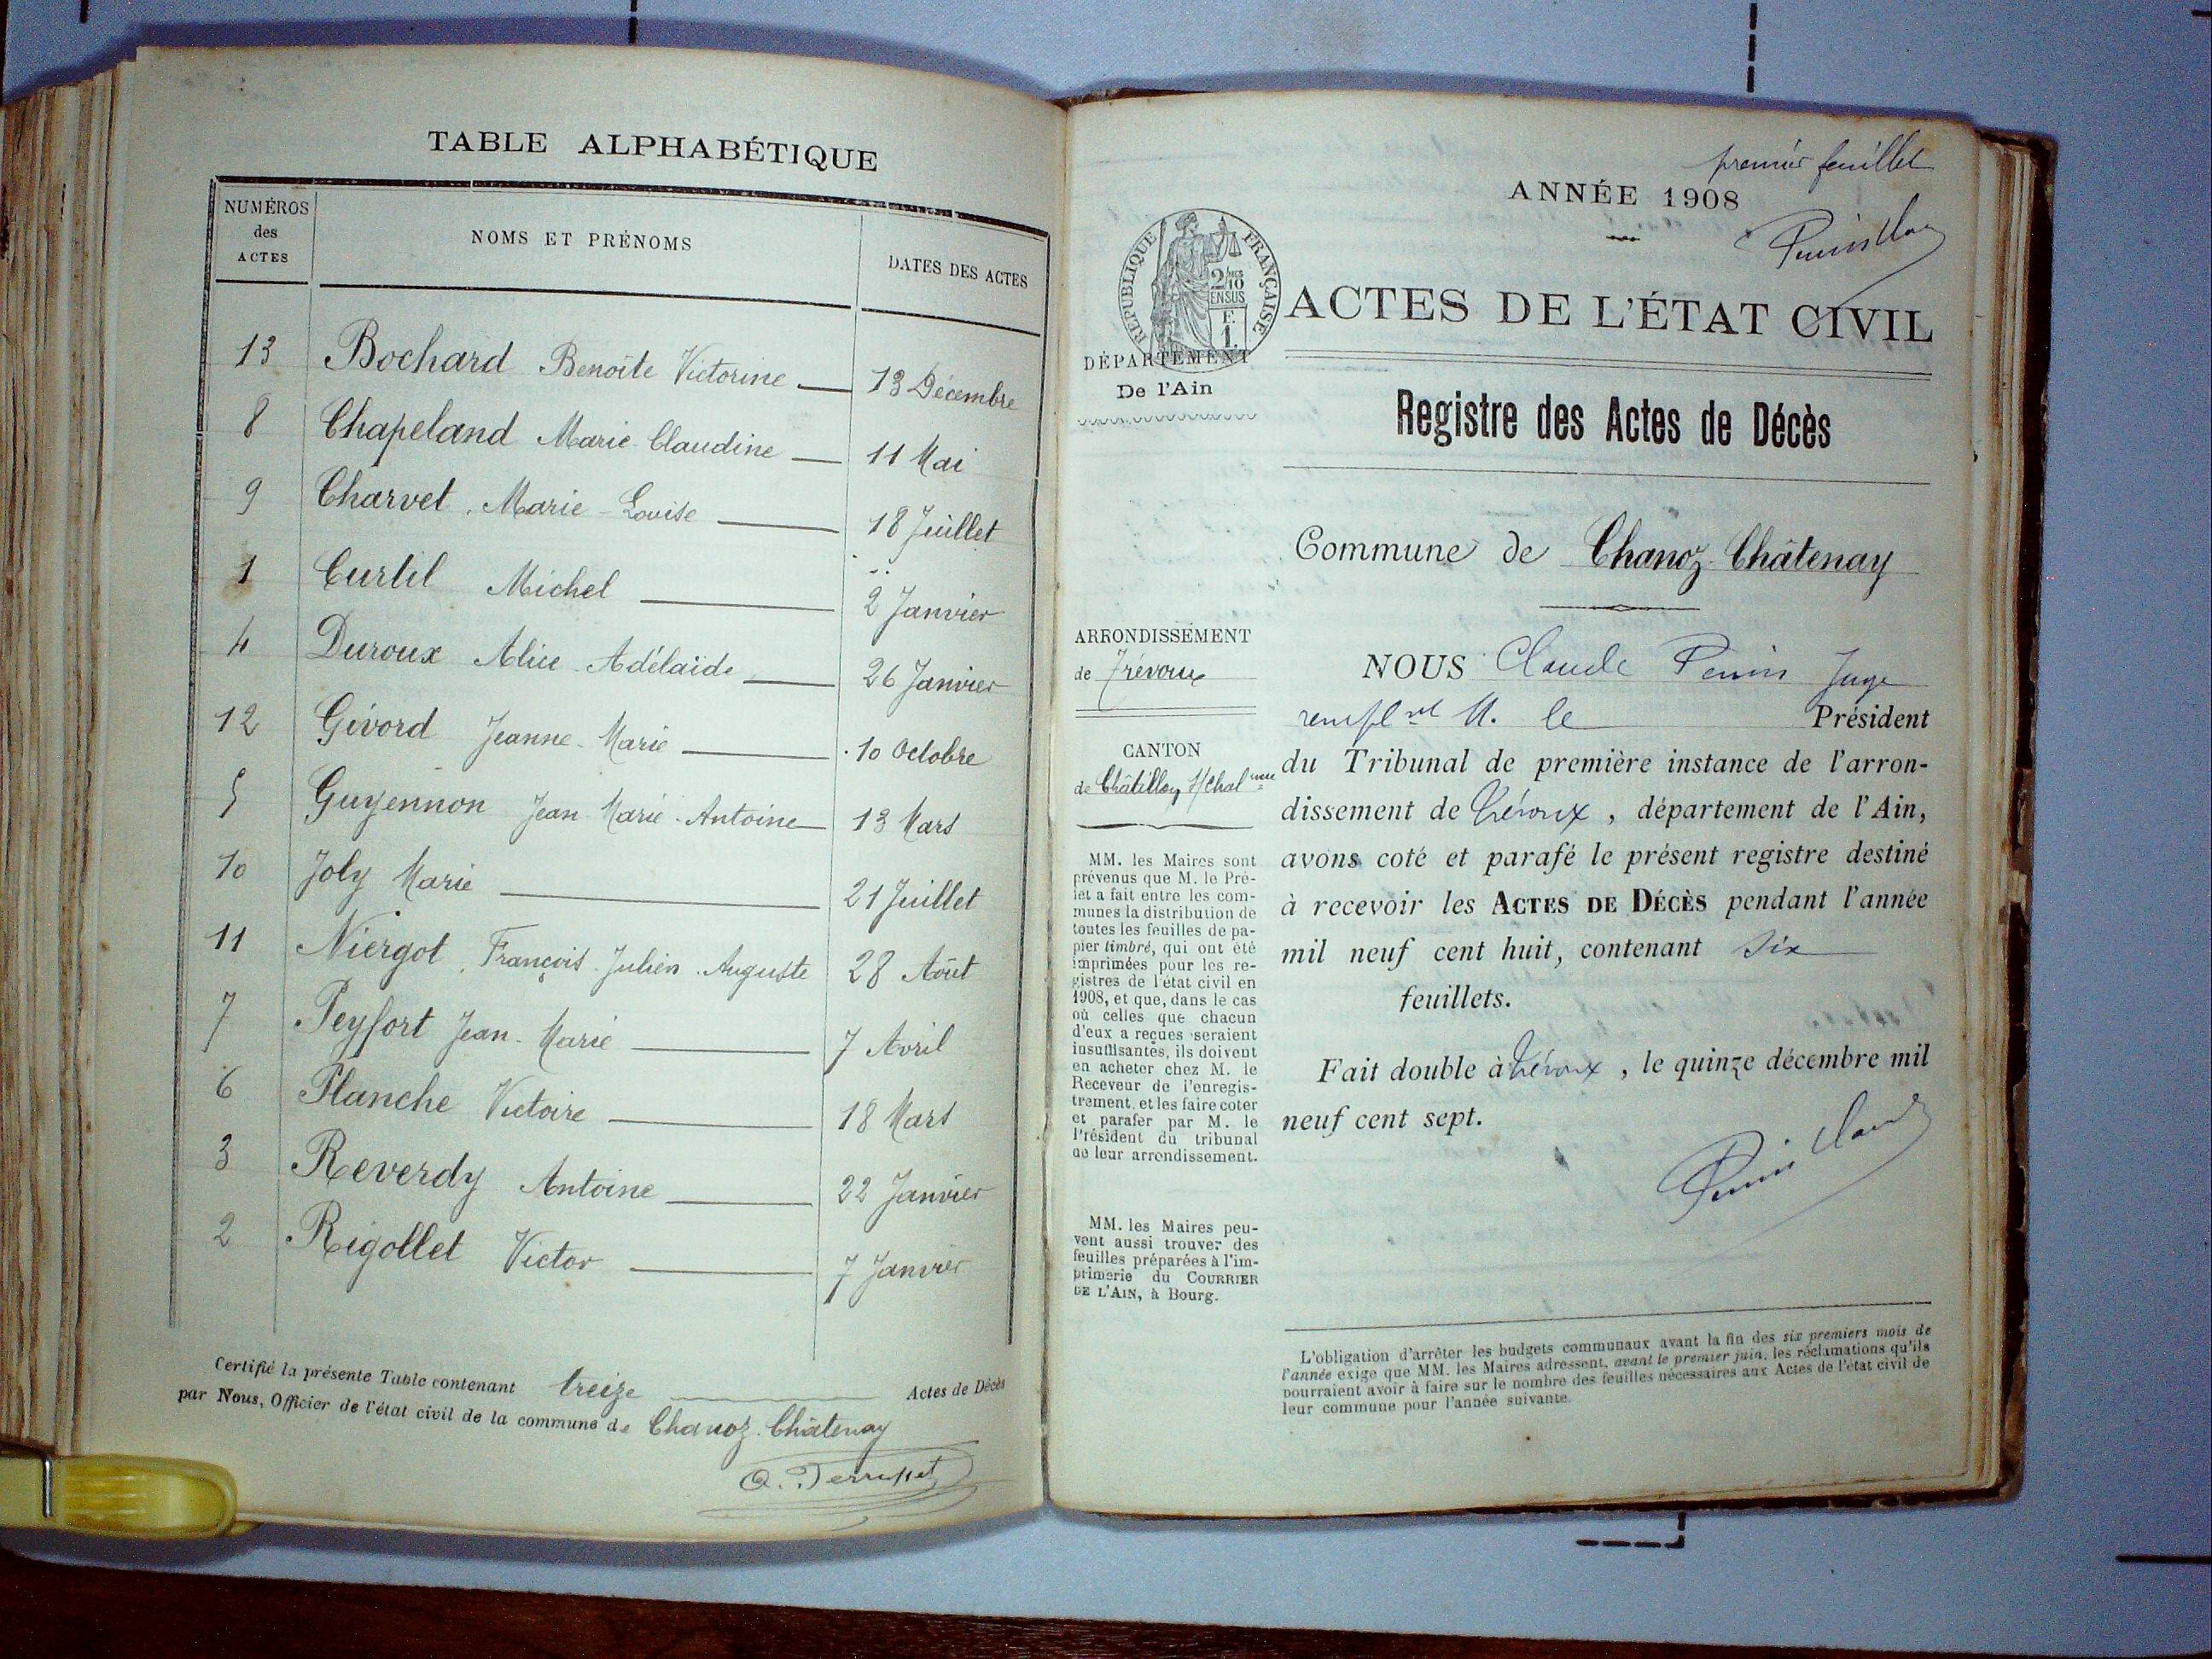 TABLE ALPHABÉTIQUE
NUMÉROS des ACTES
NOMS ET PRÉNOMS
DATES DES ACTES
13 Bochard Benoîte Victorine 13 Décembre
8 Chapeland Marie Claudine 11 Mai
9 Charvet Marie-Louise 18 Juillet
1 Curtil Michel 2 Janvier
4 Duroux Alice Adélaïde 26 Janvier
12 Givord Jeanne-Marie 10 Octobre
5 Guyennon Jean Marie Antoine 13 Mars
10 Joly Marie 21 Juillet
11 Niergot François Julien Auguste 28 Août
7 Peyfort Jean-Marie 7 Avril
6 Planche Victoire 18 Mars
3 Reverdy Antoine 22 Janvier
2 Rigollet Victor 7 Janvier
Certifié la présente Table contenant treize Actes de Décès
par Nous, Officier de l'état civil de la commune de Chanoz-Châtenay
premier feuillet
ANNÉE 1908
RÉPUBLIQUE FRANÇAISE
2/10
EN SUS
F.
1.
DÉPARTEMENT
De l'Ain
ACTES DE L'ÉTAT CIVIL
Registre des Actes de Décès
Commune de Chanoz-Châtenay
ARRONDISSEMENT
de Trévoux
CANTON
de Châtillon s/Chal
MM. les Maires sont
prévenus que M. le Pré-
fet a fait entre les com-
munes la distribution de
toutes les feuilles de pa-
pier timbré, qui ont été
imprimées pour les re-
gistres de l'état civil en
1908, et que, dans le cas
où celles que chacun
d'eux a reçues seraient
insuffisantes, ils doivent
en acheter chez M. le
Receveur de l'enregis-
trement, et les faire coter
et parafer par M. le
Président du tribunal
de leur arrondissement.
MM. les Maires peu-
vent aussi trouver des
feuilles préparées à l'im-
primerie du COURRIER
DE L'AIN, à Bourg.
NOUS Claude Perrin Juge
M. le Président
du Tribunal de première instance de l'arron-
dissement de Trévoux, département de l'Ain,
avons coté et parafé le présent registre destiné
à recevoir les ACTES DE DÉCÈS pendant l'année
mil neuf cent huit, contenant six
feuillets.
Fait double à Trévoux, le quinze décembre mil
neuf cent sept.
L'obligation d'arrêter les budgets communaux avant la fin des six premiers mois de
l'année exige que MM. les Maires adressent, avant le premier juin, les réclamations qu'ils
pourraient avoir à faire sur le nombre des feuilles nécessaires aux Actes de l'état civil de
leur commune pour l'année suivante.